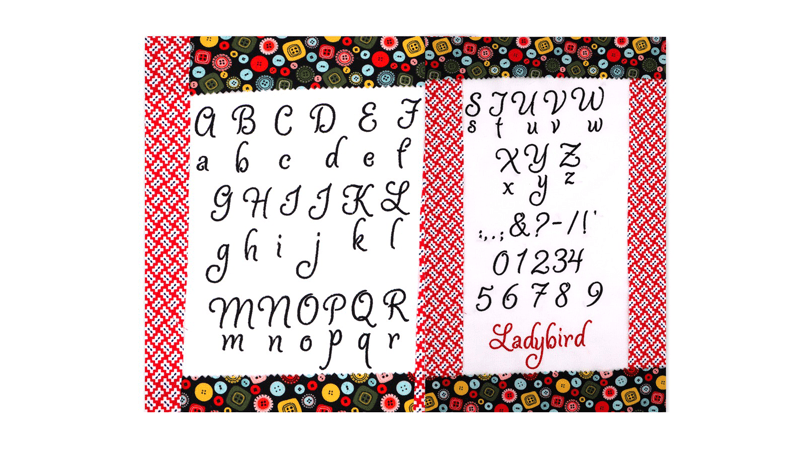 A B C D E F
a b c d e f
G H I J K L
g h i j k l
M N O P Q R
m n o p q r
S T U V W
s t u v w
X Y Z
x y z
:,.;&?-/!'
01234
5 6 7 8 9
Ladybird